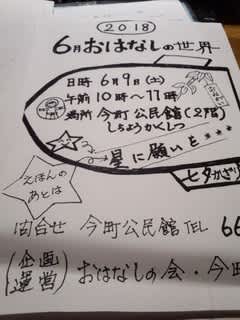 2018
6月おはなしの世界
日時 6月9日(土)
午前10時～11時
場所 今町公民館(2階)
しちょうかくしつ
えほんの
あとは
星に願いを
七夕かざり
問合せ 今町公民館 TEL 66
(企画
運営) おはなしの会・今町